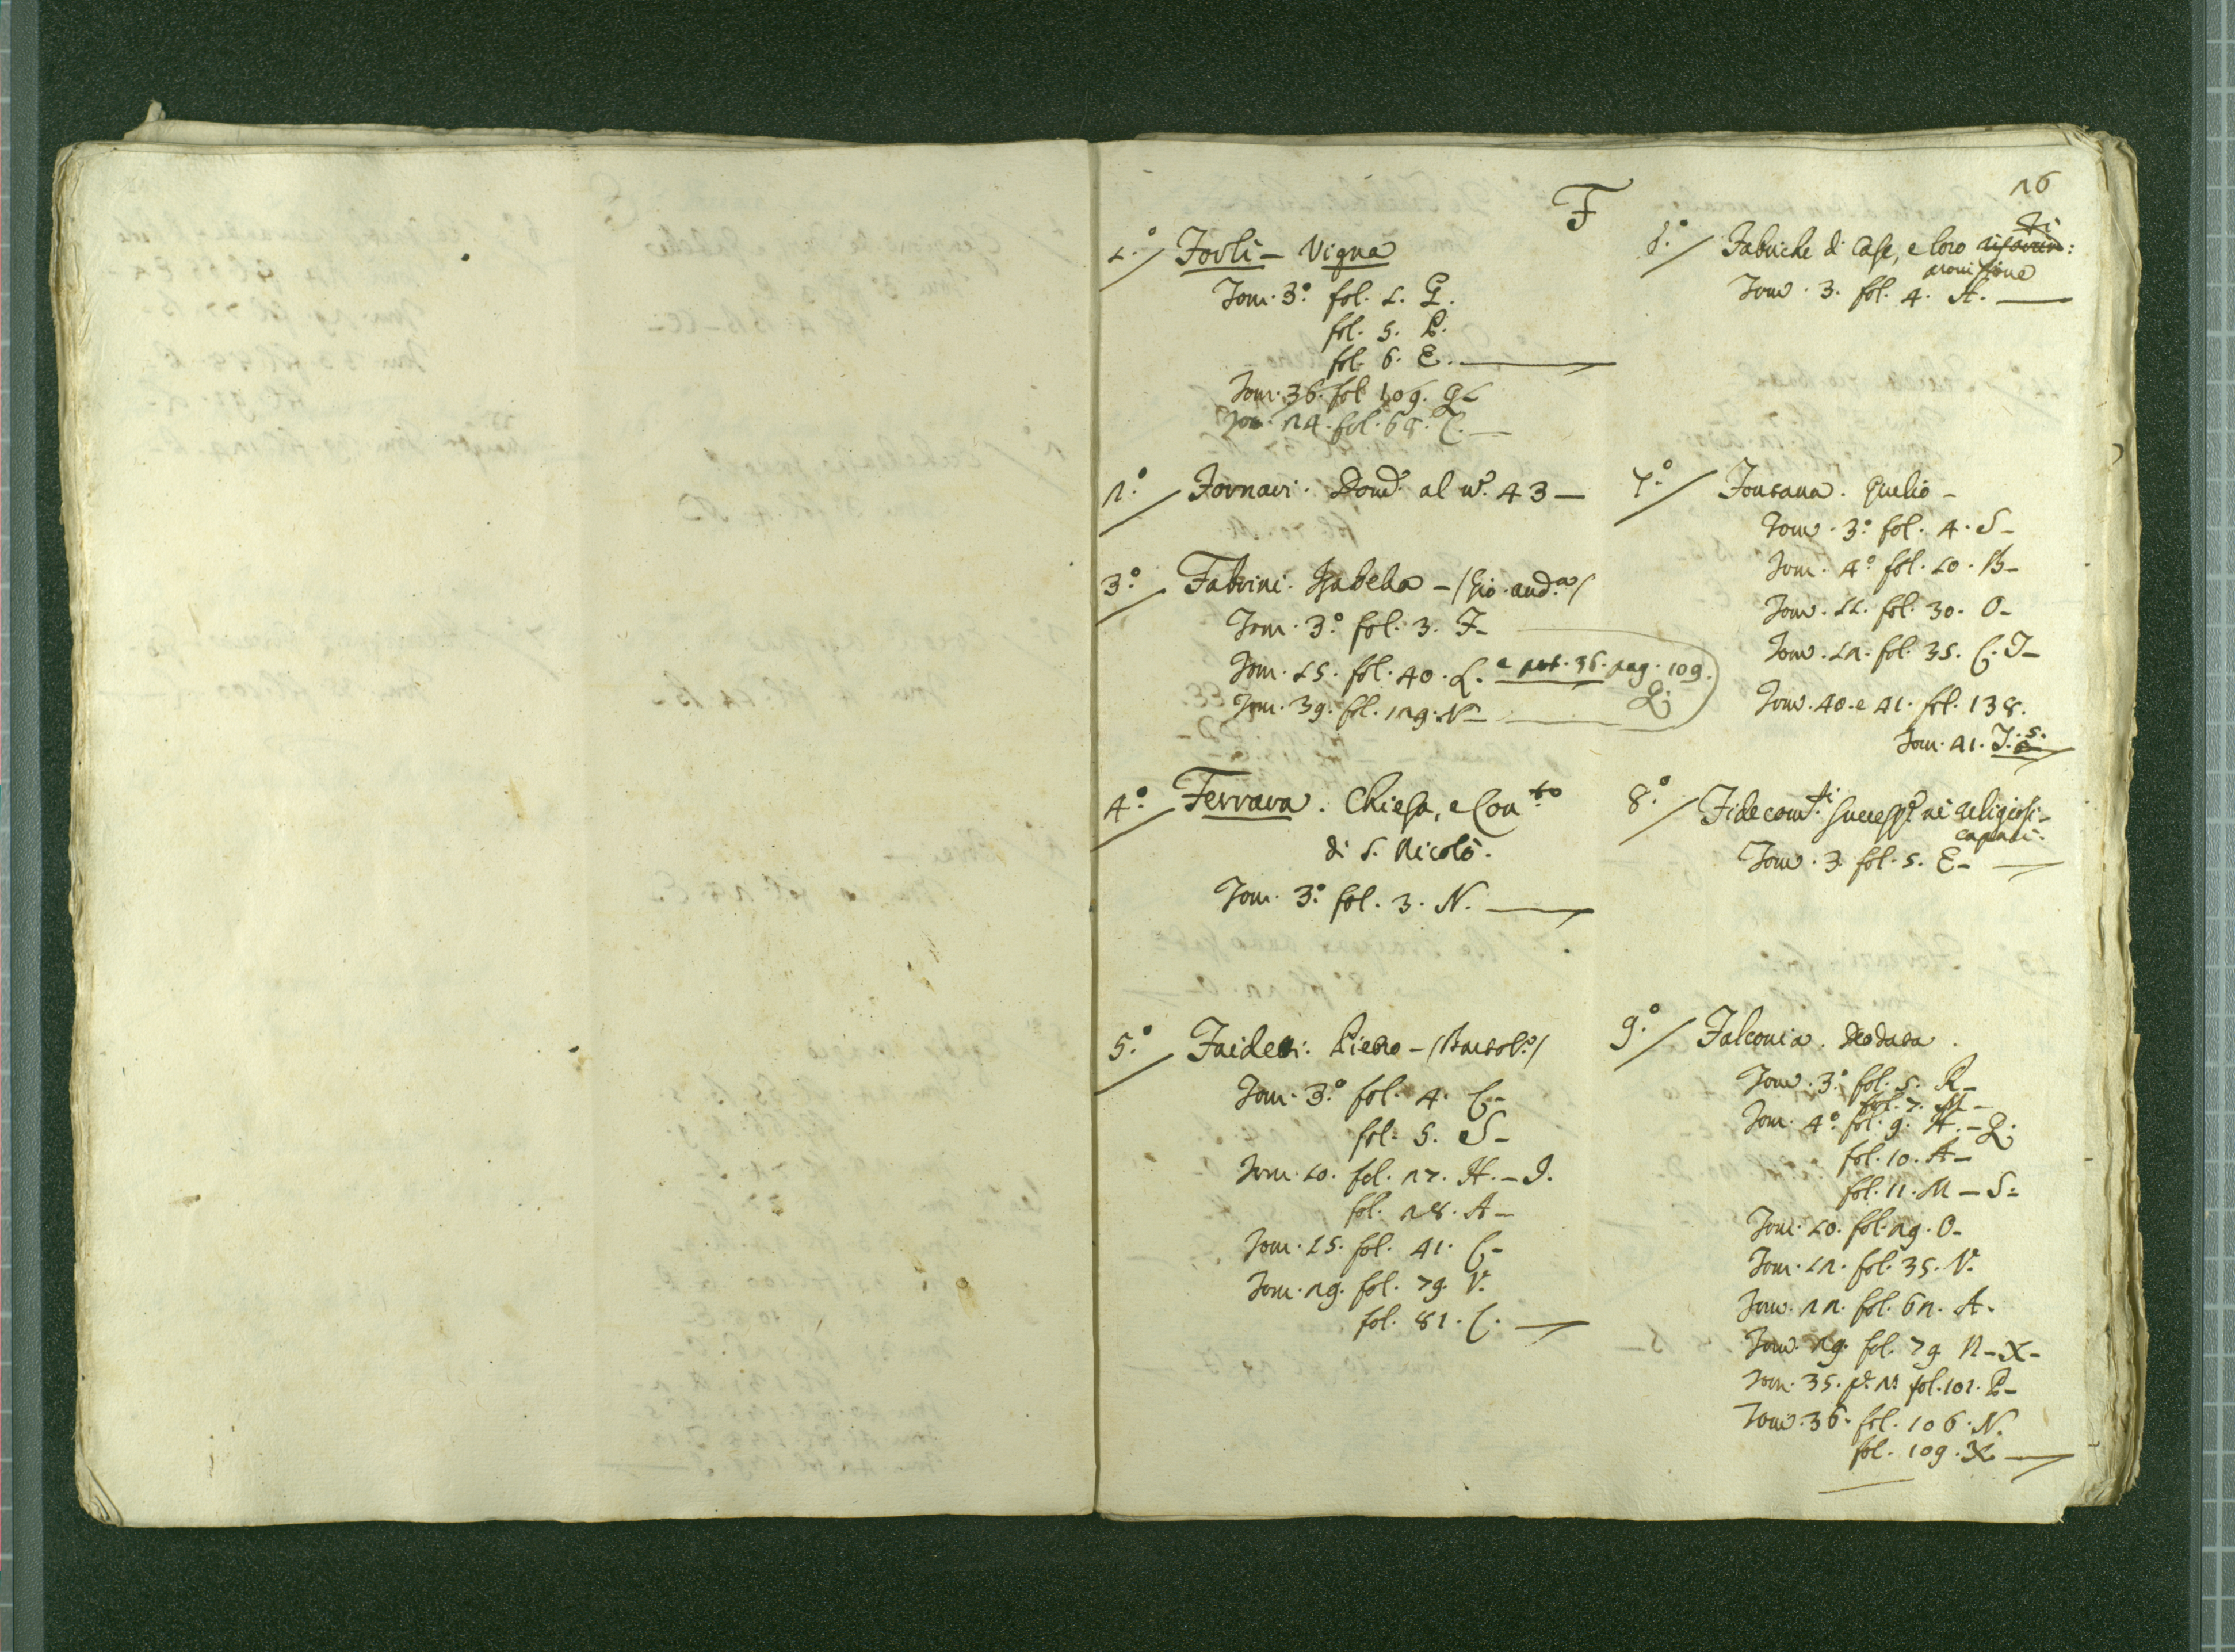 F
26
1.° Forlì – Vigna
Tom. 3.° fol. 1. G.
fol. 5. P.
fol. 6. E.
Tom. 36. fol. 109.
Tom. 24. fol. 68. C.
2.° Fornari. Dom.° al n.° 43 –
3.° Fabrini. Isabella – (Gio. And.ª)
Tom. 3.° fol. 3. F –
Tom. 15. fol. 40. L. e pot. 36. pag. 109. Q.
Tom. 39. fol. 129. N –
4.° Ferrara. Chiesa, e Con.to
di S. Nicolò.
Tom. 3.° fol. 3. N.
5.° Faideti. Pietro – (Bartol.º)
Tom. 3.° fol. 4. C –
fol. 5. S –
Tom. 10. fol. 27. H. – I.
fol. 28. A –
Tom. 15. fol. 41. C –
Tom. 29. fol. 79. V.
fol. 81. C.
6.° Fabriche di Case, e loro
Tom. 3. fol. 4. A.
7.° Fontana. Guelio –
Tom. 3.° fol. 4. S –
Tom. 4.° fol. 10. B –
Tom. 11. fol. 30. O –
Tom. 12. fol. 35. C. I –
Tom. 40. e 41. fol. 138.
Tom. 41. I. 5.
8.° Fidecom.ti Success.e ne religiosi –
capaci.
Tom. 3. fol. 5. E –
9.° Falconia. Deodata.
Tom. 3.° fol. 5. R –
fol. 7. M –
Tom. 4.° fol. 9. H. – Q.
fol. 10. A –
fol. 11. M – S.
Tom. 10. fol. 29. O –
Tom. 12. fol. 35. V.
Tom. 22. fol. 62. A.
Tom. 29. fol. 79. N – X –
Tom. 35. p.e 2ª fol. 101. P –
Tom. 36. fol. 106. N.
fol. 109. X.